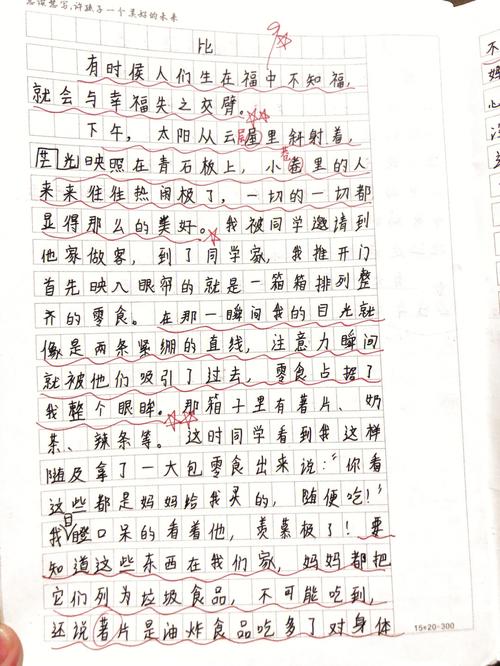 思误慧写,许孩子一个美好的未来
比
有时候人们生在福中不知福,
就会与幸福失之交臂。
下午,太阳从云层里斜射着,
阳光映照在青石板上,小巷里的人
来来往往热闹极了,一切的一切都
显得那么的美好。我被同学邀请到
他家做客,到了同学家,我推开门
首先映入眼帘的就是一箱箱排列整
齐的零食。在那一瞬间我的目光就
像是两条紧绷的直线,注意力瞬间
就被他们吸引了过去,零食占据了
我整个眼眸。那箱子里有薯片、奶
茶、辣条等。这时同学看到我这样
随及拿了一大包零食出来说:“你看
这些都是妈妈给我买的,随便吃!”
我目瞪口呆的看着他,羡慕极了!要
知道这些东西在我们家,妈妈都把
它们列为垃圾食品,不可能吃到,
还说薯片是油炸食品吃多了对身体
15×20=300
不
妈
心